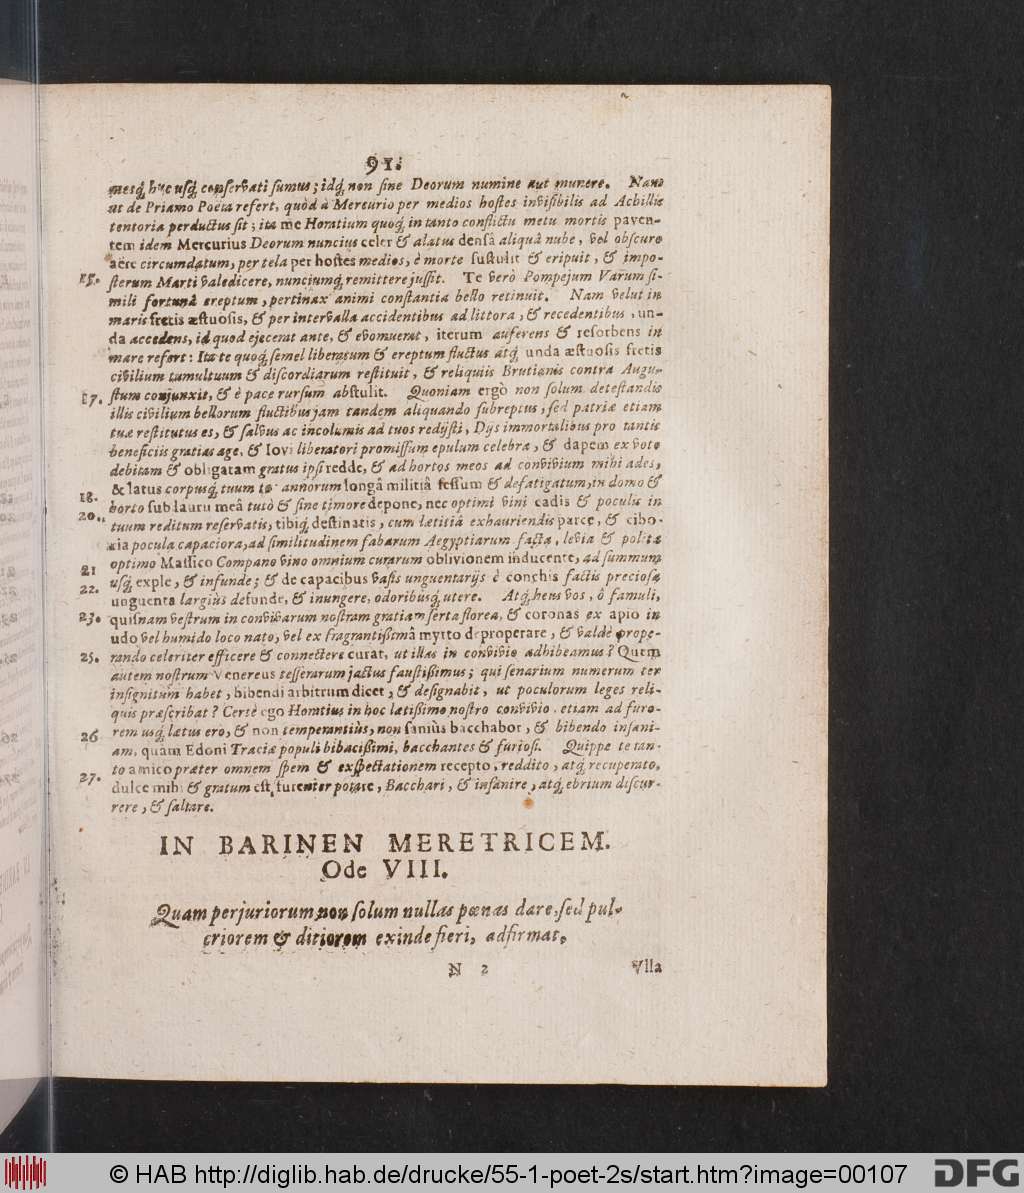 91.
mesq́; huc usq́; conservati sumus; idq́; non sine Deorum numine aut munere. Nam
ut de Priamo Poeta refert, quòd à Mercurio per medios hostes invisibilis ad Achillis
tentoria perductus sit; ita me Horatium quoq́; in tanto conflictu metu mortis paven-
tem idem Mercurius Deorum nuncius celer & alatus densâ aliquâ nube, vel obscuro
aëre circumdatum, per tela per hostes medios, è morte sustulit & eripuit, & impo-
15. sterum Marti valedicere, nunciumq́; remittere jussit. Te verò Pompejum Varum si-
mili fortunâ ereptum, pertinax animi constantia bello retinuit. Nam velut in
maris fretis æstuosis, & per intervalla accidentibus ad littora, & recedentibus, un-
da accedens, id quod ejecerat ante, & evomuerat, iterum auferens & resorbens in
mare refert: Ita te quoq́; semel liberatum & ereptum fluctus atq́; unda æstuosis fretis
civilium tumultuum & discordiarum restituit, & reliquiis Brutianis contra Augu-
17. stum conjunxit, & è pace rursum abstulit. Quoniam ergò non solum detestandis
illis civilium bellorum fluctibus jam tandem aliquando subreptus, sed patriæ etiam
tuæ restitutus es, & salvus ac incolumis ad tuos redijsti, Dijs immortalibus pro tantis
beneficiis gratias age, & Iovi liberatori promissum epulum celebra, & dapem ex voto
debitam & obligatam gratus ipsi redde, & ad hortos meos ad convivium mihi ades,
& latus corpusq́; tuum tot annorum longâ militiâ fessum & defatigatum, in domo &
18. horto sub lauru meâ tutò & sine timore depone, nec optimi vini cadis & poculis in
20. tuum reditum reservatis, tibiq́; destinatis, cum lætitiâ exhauriendis parce, & cibo-
ria pocula capaciora, ad similitudinem fabarum Aegyptiarum facta, levia & polita
21 optimo Massico Compano vino omnium curarum oblivionem inducente, ad summum
usq́; exple, & infunde; & de capacibus vasis unguentarijs è conchis factis preciosa
22. unguenta largiùs defunde, & inungere, odoribusq́; utere. Atq́; heus vos, ô famuli,
23. quisnam vestrum in convivarum nostram gratiam serta florea, & coronas ex apio in
udo vel humido loco nato, vel ex fragrantißimâ myrto deproperare, & valdè prope-
25. rando celeriter efficere & connectere curat, ut illas in convivio adhibeamus? Quem
autem nostrum Venereus tesserarum jactus faustißimus; qui senarium numerum ter
insignitum habet, bibendi arbitrum dicet, & designabit, ut poculorum leges reli-
quis præscribat? Certè ego Horatius in hoc lætißimo nostro convivio, etiam ad furo-
26 rem usq́; lætus ero, & non temperantiùs, non saniùs bacchabor, & bibendo insani-
am, quàm Edoni Traciæ populi bibacißimi, bacchantes & furiosi. Quippe te tan-
to amico præter omnem spem & exspectationem recepto, reddito, atq́; recuperato,
27. dulce mihi & gratum est, furenter potare, Bacchari, & insanire, atq́; ebrium discur-
rere, & saltare.
IN BARINEN MERETRICEM.
Ode VIII.
Quam perjuriorum non solum nullas pœnas dare, sed pul-
criorem & ditiorem exinde fieri, adfirmat.
N 2 Vlla
© HAB http://diglib.hab.de/drucke/55-1-poet-2s/start.htm?image=00107
DFG